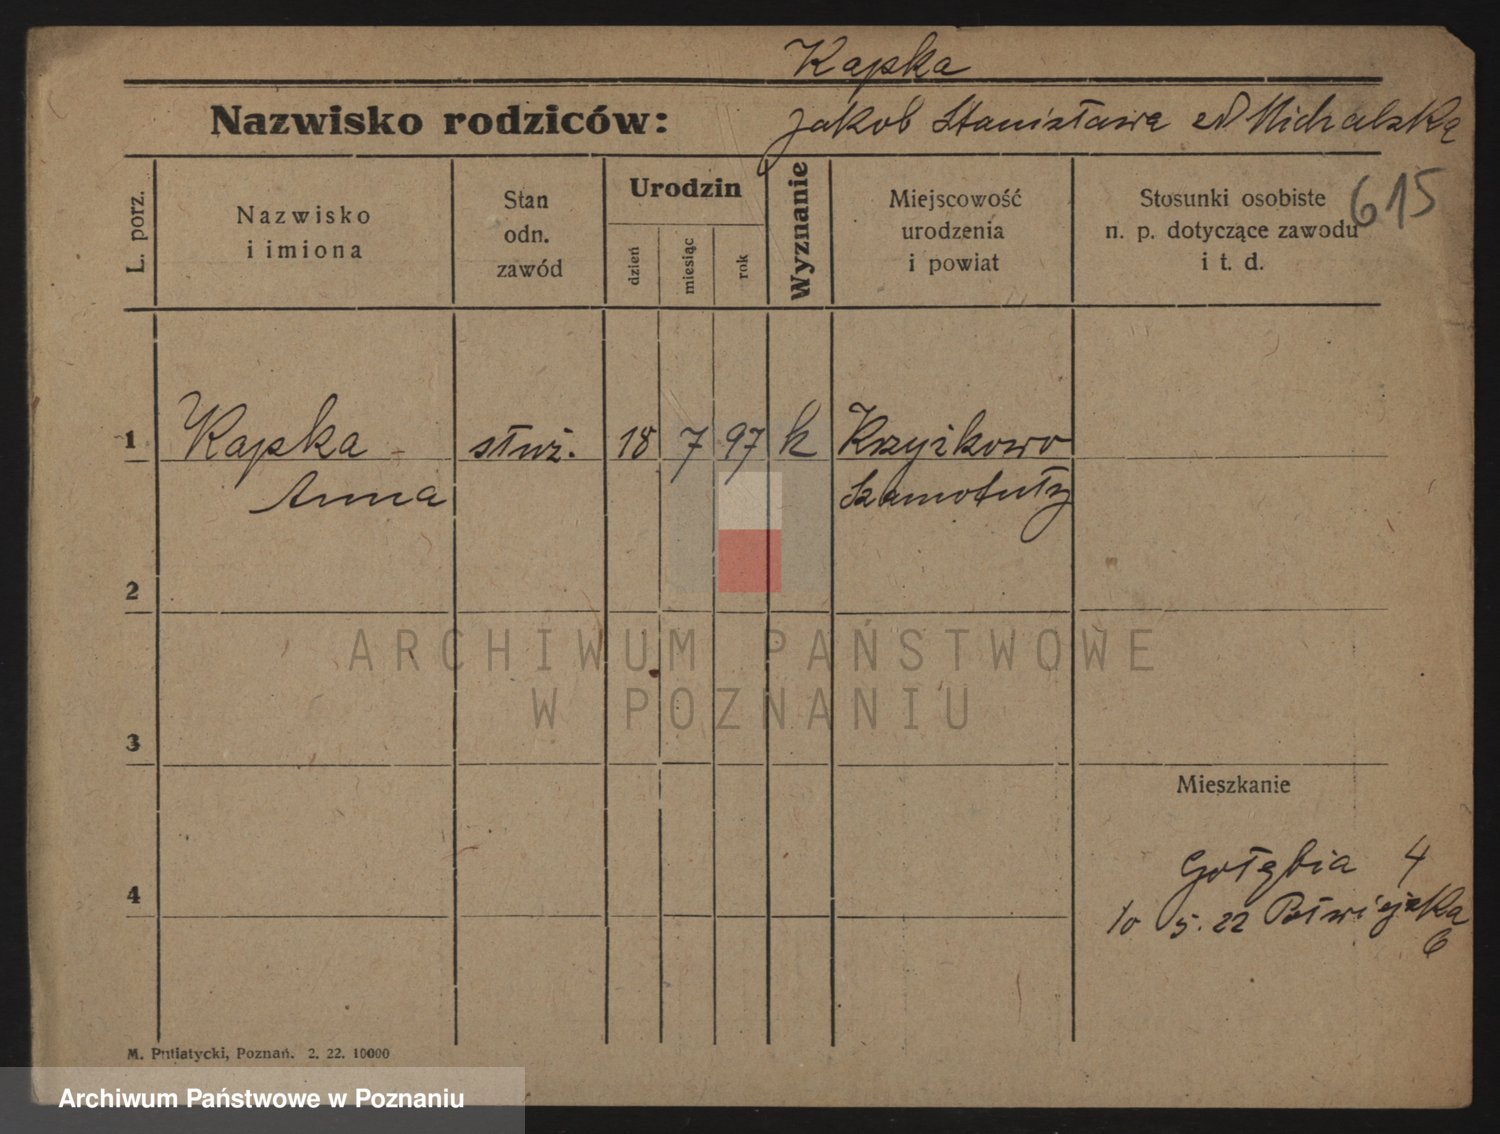 Kapka
Nazwisko rodziców: Jakób Stanisława z d Michalska
615
L. porz.
Nazwisko i imiona
Stan odn. zawód
Urodzin
dzień
miesiąc
rok
Wyznanie
Miejscowość urodzenia i powiat
Stosunki osobiste n. p. dotyczące zawodu i t. d.
1 Kapka służ. 18 7 97 k Krzyżkowo
Anna Szamotuły
2
ARCHIWUM PAŃSTWOWE
W POZNANIU
3
Mieszkanie
Gołębia 4
4
10 5. 22 Półwiejska
6
M. Putiatycki, Poznań. 2. 22. 10000
Archiwum Państwowe w Poznaniu